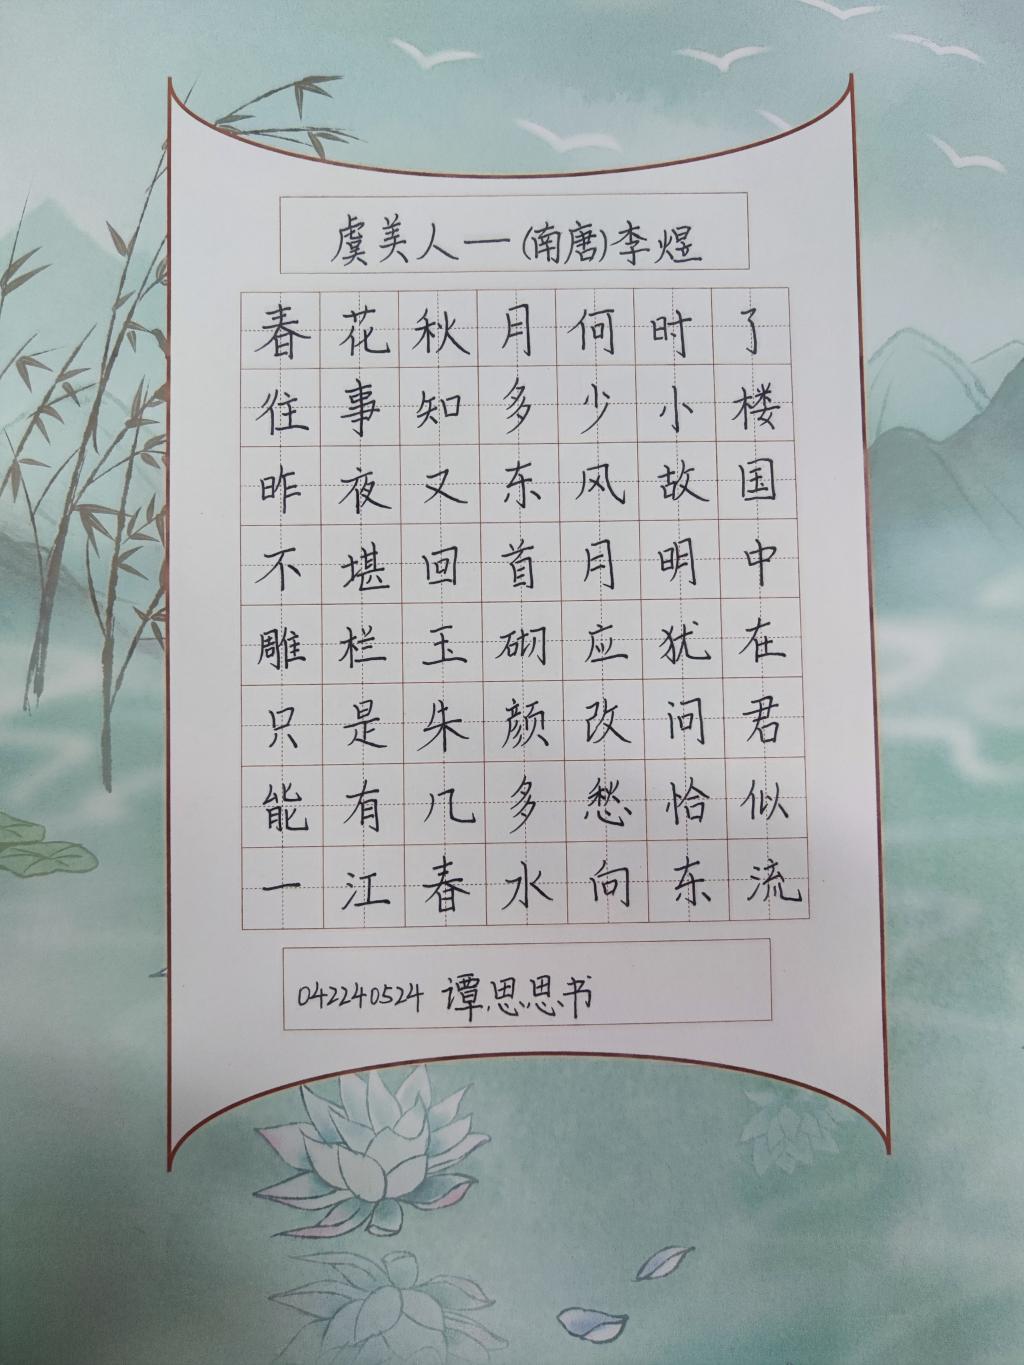 虞美人一(南唐)李煜
春花秋月何时了
往事知多少小楼
昨夜又东风故国
不堪回首月明中
雕栏玉砌应犹在
只是朱颜改问君
能有几多愁恰似
一江春水向东流
042240524 谭思思书